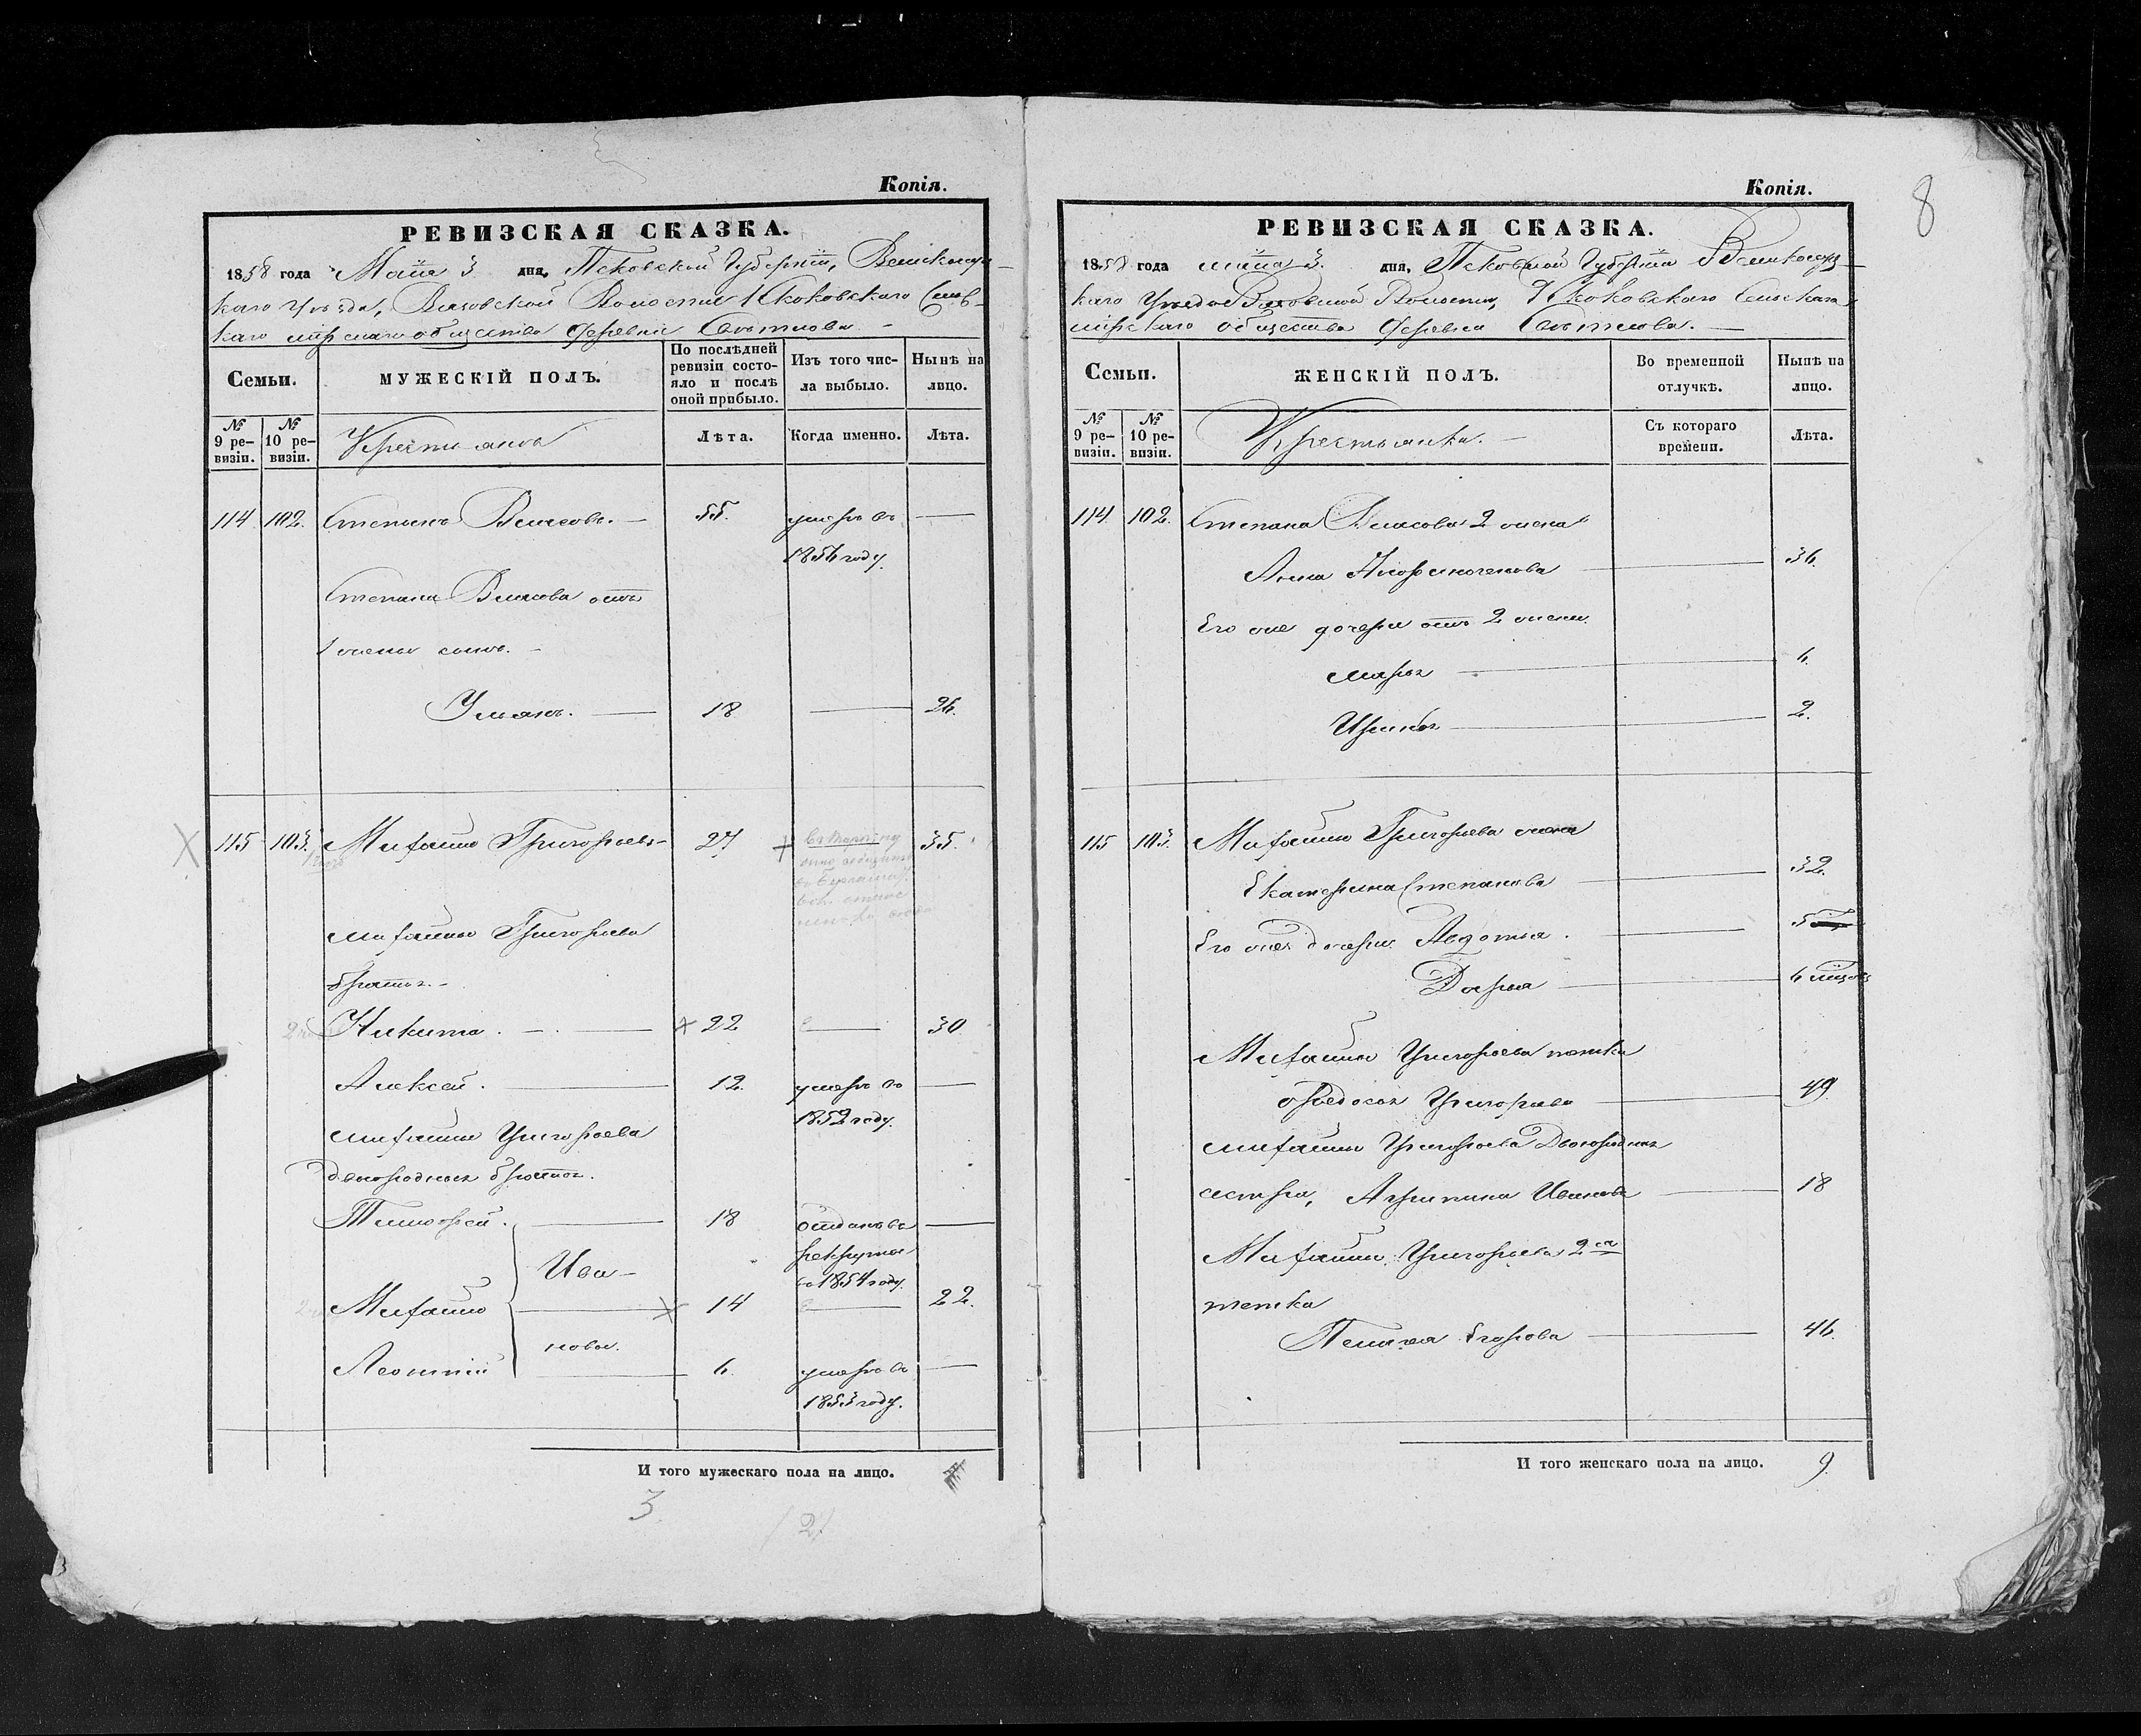 Копія.
РЕВИЗСКАЯ СКАЗКА.
1858 года Маія 3 дня, Псковской Губерніи, Великолуц-
каго Уѣзда, Волости Сель-
каго мірскаго общества Деревни
Семьи.
МУЖЕСКІЙ ПОЛЪ.
По послѣдней ревизіи состо-
яло и послѣ
оной прибыло.
Изъ того чис-
ла выбыло.
Нынѣ на
лицо.
№ 9 ре-
визіи.
№ 10 ре-
визіи.
Крестьяне
Лѣта.
Когда именно.
Лѣта.
114 102. Степанъ Власовъ. 55. умеръ въ
1856 году.
Степана Власова отъ
1 жены сынъ.
Ульянъ. 18 26.
115 103. Михайло Григорьевъ 27 35.
Михайлы Григорьева
братья.
Никита. 22 30
Алексей. 12. умеръ въ
1852 году.
Михайлы Григорьева
двоюродные братья.
Тимофей. 18 отданъ въ
рекруты
Ива-
въ 1854 году.
Михайло 14 22.
новы.
Леонтій 6. умеръ въ
1853 году.
И того мужескаго пола на лицо.
3
/2/
8
Копія.
РЕВИЗСКАЯ СКАЗКА.
1858 года маія 3. дня, Псковской Губерніи Великолуц-
каго Уѣзда Волости, Сельскаго
мірскаго общества Деревни
Семьи.
ЖЕНСКІЙ ПОЛЪ.
Во временной
отлучкѣ.
Нынѣ на
лицо.
№ 9 ре-
визіи.
№ 10 ре-
визіи.
Крестьянки.
Съ котораго
времени.
Лѣта.
114. 102. Степана Власова 2 жена
Анна 36.
Его же дочери отъ 2 жены.
Марья 6.
Ирина 2.
115 103. Михайлы Григорьева жена
Екатерина Степанова 32.
Его же дочери Авдотья. 5
Дарья 6 місяц.
Михайлы Григорьева тетка
Федосья Григорьева 49.
Михайлы Григорьева Двоюродная
сестра, Агрипина Иванова 18
Михайлы Григорьева 2ая
тетка
Пелагея Егорова 46.
И того женскаго пола на лицо. 9.